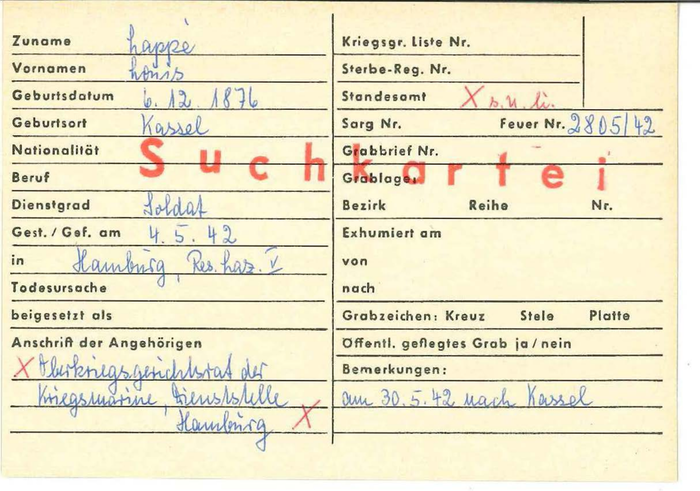 Zuname Lappè
Vornamen Louis
Geburtsdatum 6.12.1876
Geburtsort Kassel
Nationalität
Beruf
Suchkartei
Dienstgrad Soldat
Gest. / Gef. am 4.5.42
in Hamburg, Res. Laz. V
Todesursache
beigesetzt als
Anschrift der Angehörigen
X Oberkriegsgerichtsrat der
Kriegsmarine, Dienststelle
Hamburg X
Kriegsgr. Liste Nr.
Sterbe-Reg. Nr.
Standesamt X s. u. li.
Sarg Nr. Feuer Nr. 2805/42
Grabbrief Nr.
Grablage:
Bezirk Reihe Nr.
Exhumiert am
von
nach
Grabzeichen: Kreuz Stele Platte
Öffentl. gepflegtes Grab ja / nein
Bemerkungen:
am 30.5.42 nach Kassel